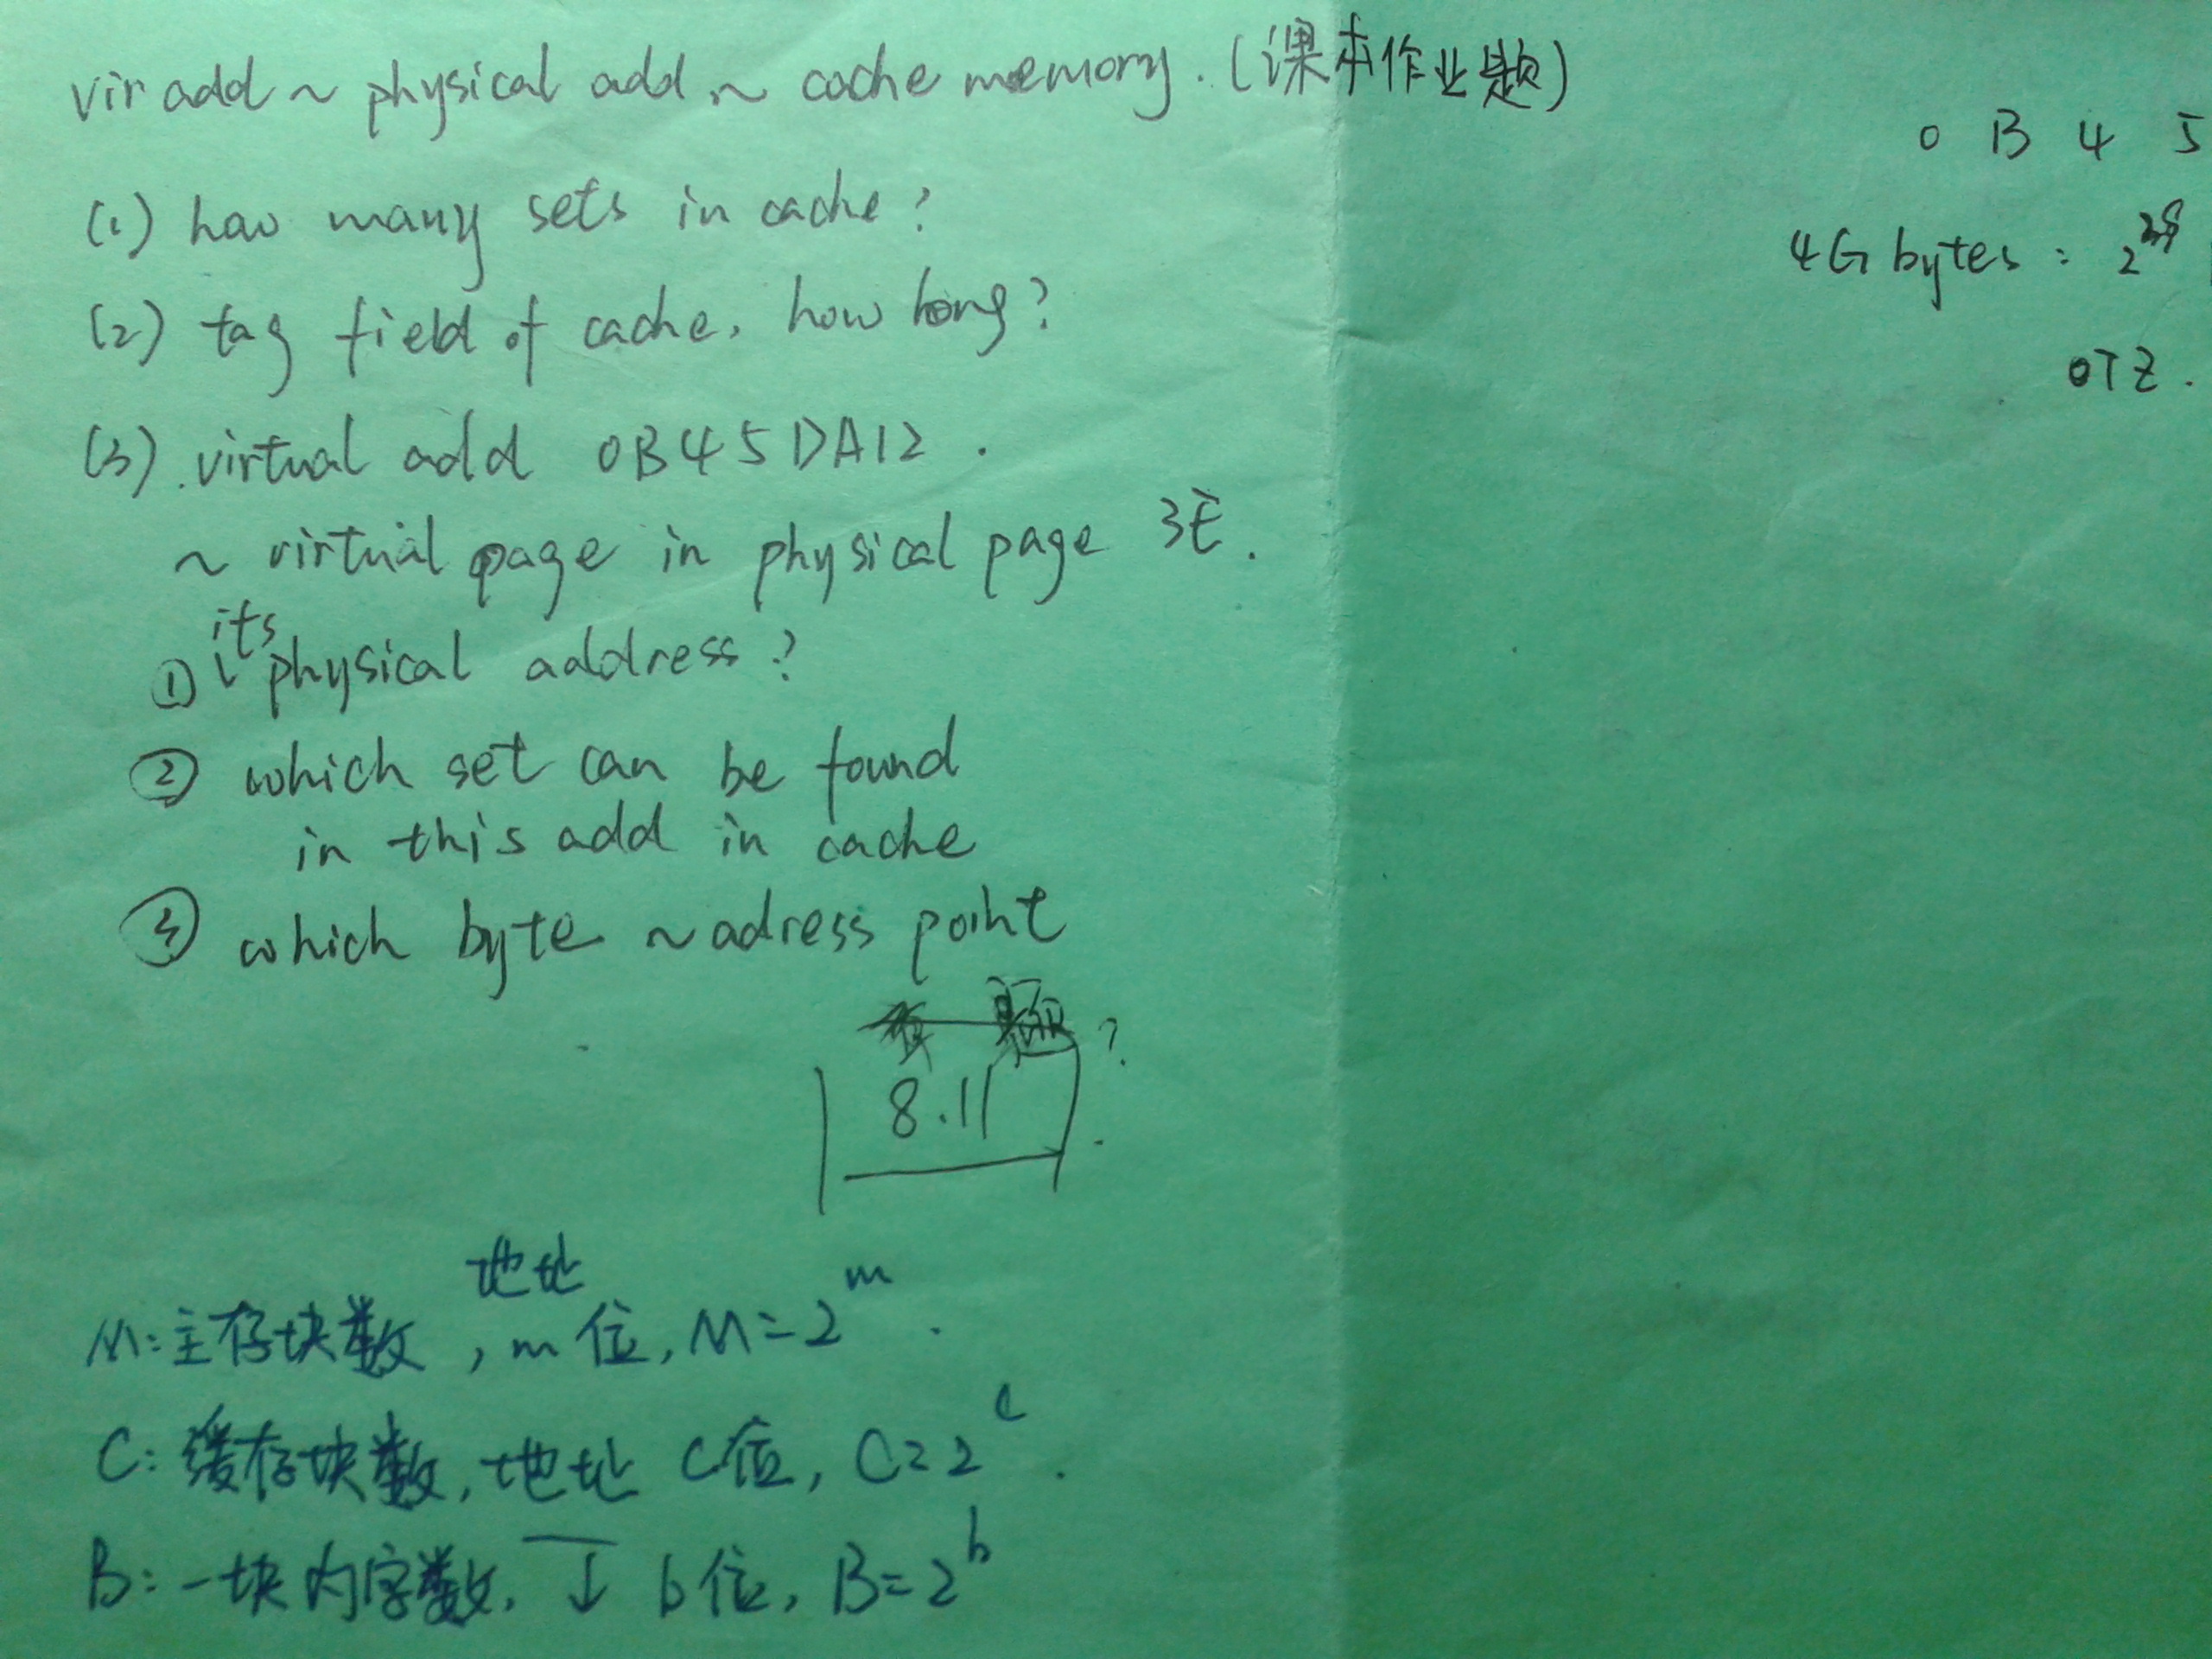 vir add ~ physical add ~ cache memory. (课本作业题)
(1) how many sets in cache?
(2) tag field of cache, how long?
(3) .virtual add 0B45DA12 .
~ virtual page in physical page 3E.
① its physical address?
② which set can be found
in this add in cache
③ which byte ~ adress point
?
8.11
M:主存块数, 地址 m 位, M=2^m .
C:缓存块数, 地址 c位, C=2^c .
B:一块内字数. ↓ b位, B=2^b
0 B 4 5
4G bytes : 2
OTZ .